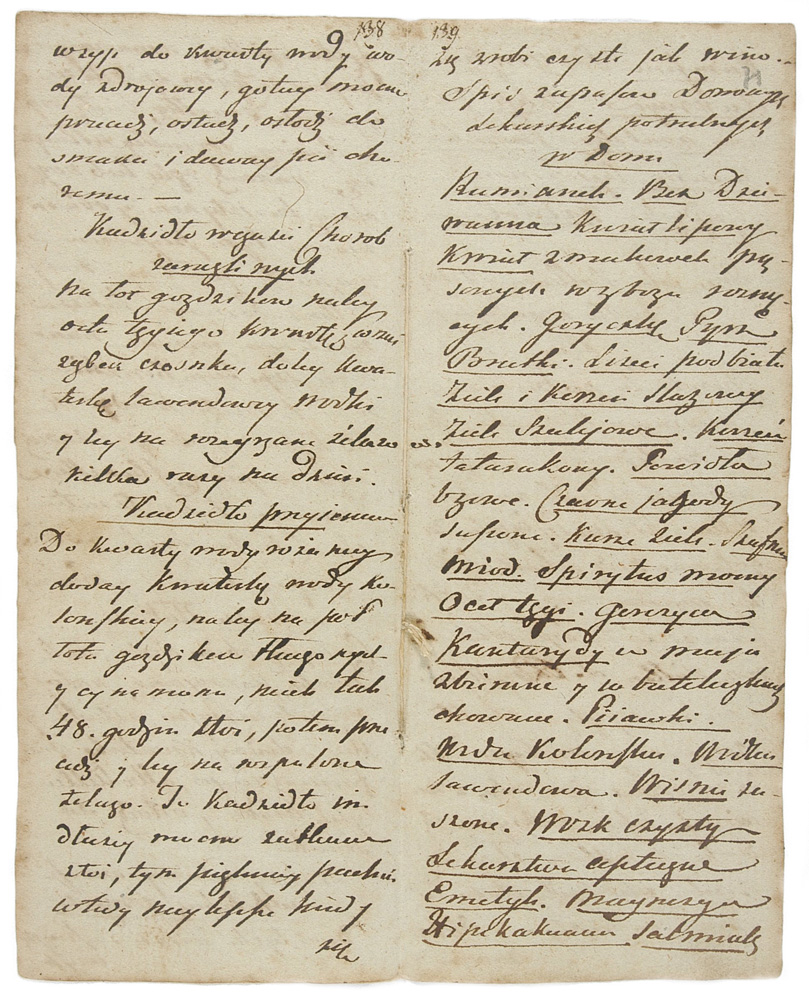 138
wsyp do kwarty wody wo-
dy zdrojowey, gotuy mocno
precedź, ostudź, osłodź do
smaku i daway pić cho-
remu. —
Kadzidło w czasie Chorob
zaraźliwych
Na łot gozdzikow naley
octu tęgiego kwartę, wrzuć
ząbek czosnku, doley kwa-
terkę lawendowey wodki
y ley na rozgrzane żelazo
kilka razy na dzień.
Kadzidło przyiemne
Do kwarty wody rożanney
doday kwaterkę wody ko-
lońskiey, naley na poł
łota gozdzikow tłuczonych
y cynamonu, niech tak
48. godzin stoi, potem prze
cedź y ley na rozpalone
żelazo. To kadzidło im
dłużey mocno zatkane
stoi, tym piękniey pachnie
wtedy naylepsze kiedy
się
139
się zrobi czyste jak wino.
Spis zapasow Domowey
Lekarskiey potrzebnych
w Domu
Rumianek. Bez Dzie-
wanna Kwiat lipowy
Kwiat z makowek
zboża
Goryczkę Pyrz
Bratki. Lisci podbiału
Ziele i Korzeń slazowy
Ziele Szalejowe. Korzeń
tatarakowy. Powidła
bzowe. Czarne jagody
suszone. Kurze ziele. Szafran
Miod. Spirytus mocny
Ocet tęgi. Gorczyca
Kantarydy w maju
zbierane y w buteleczkach
chowane. Pijawki.
Wodka Kolońska. Wodka
lawendowa. Wisnie su-
szone. Wosk czysty
Lekarstwa apteczne
Emetyk. Magnezya
Hipekakuana Salmiak